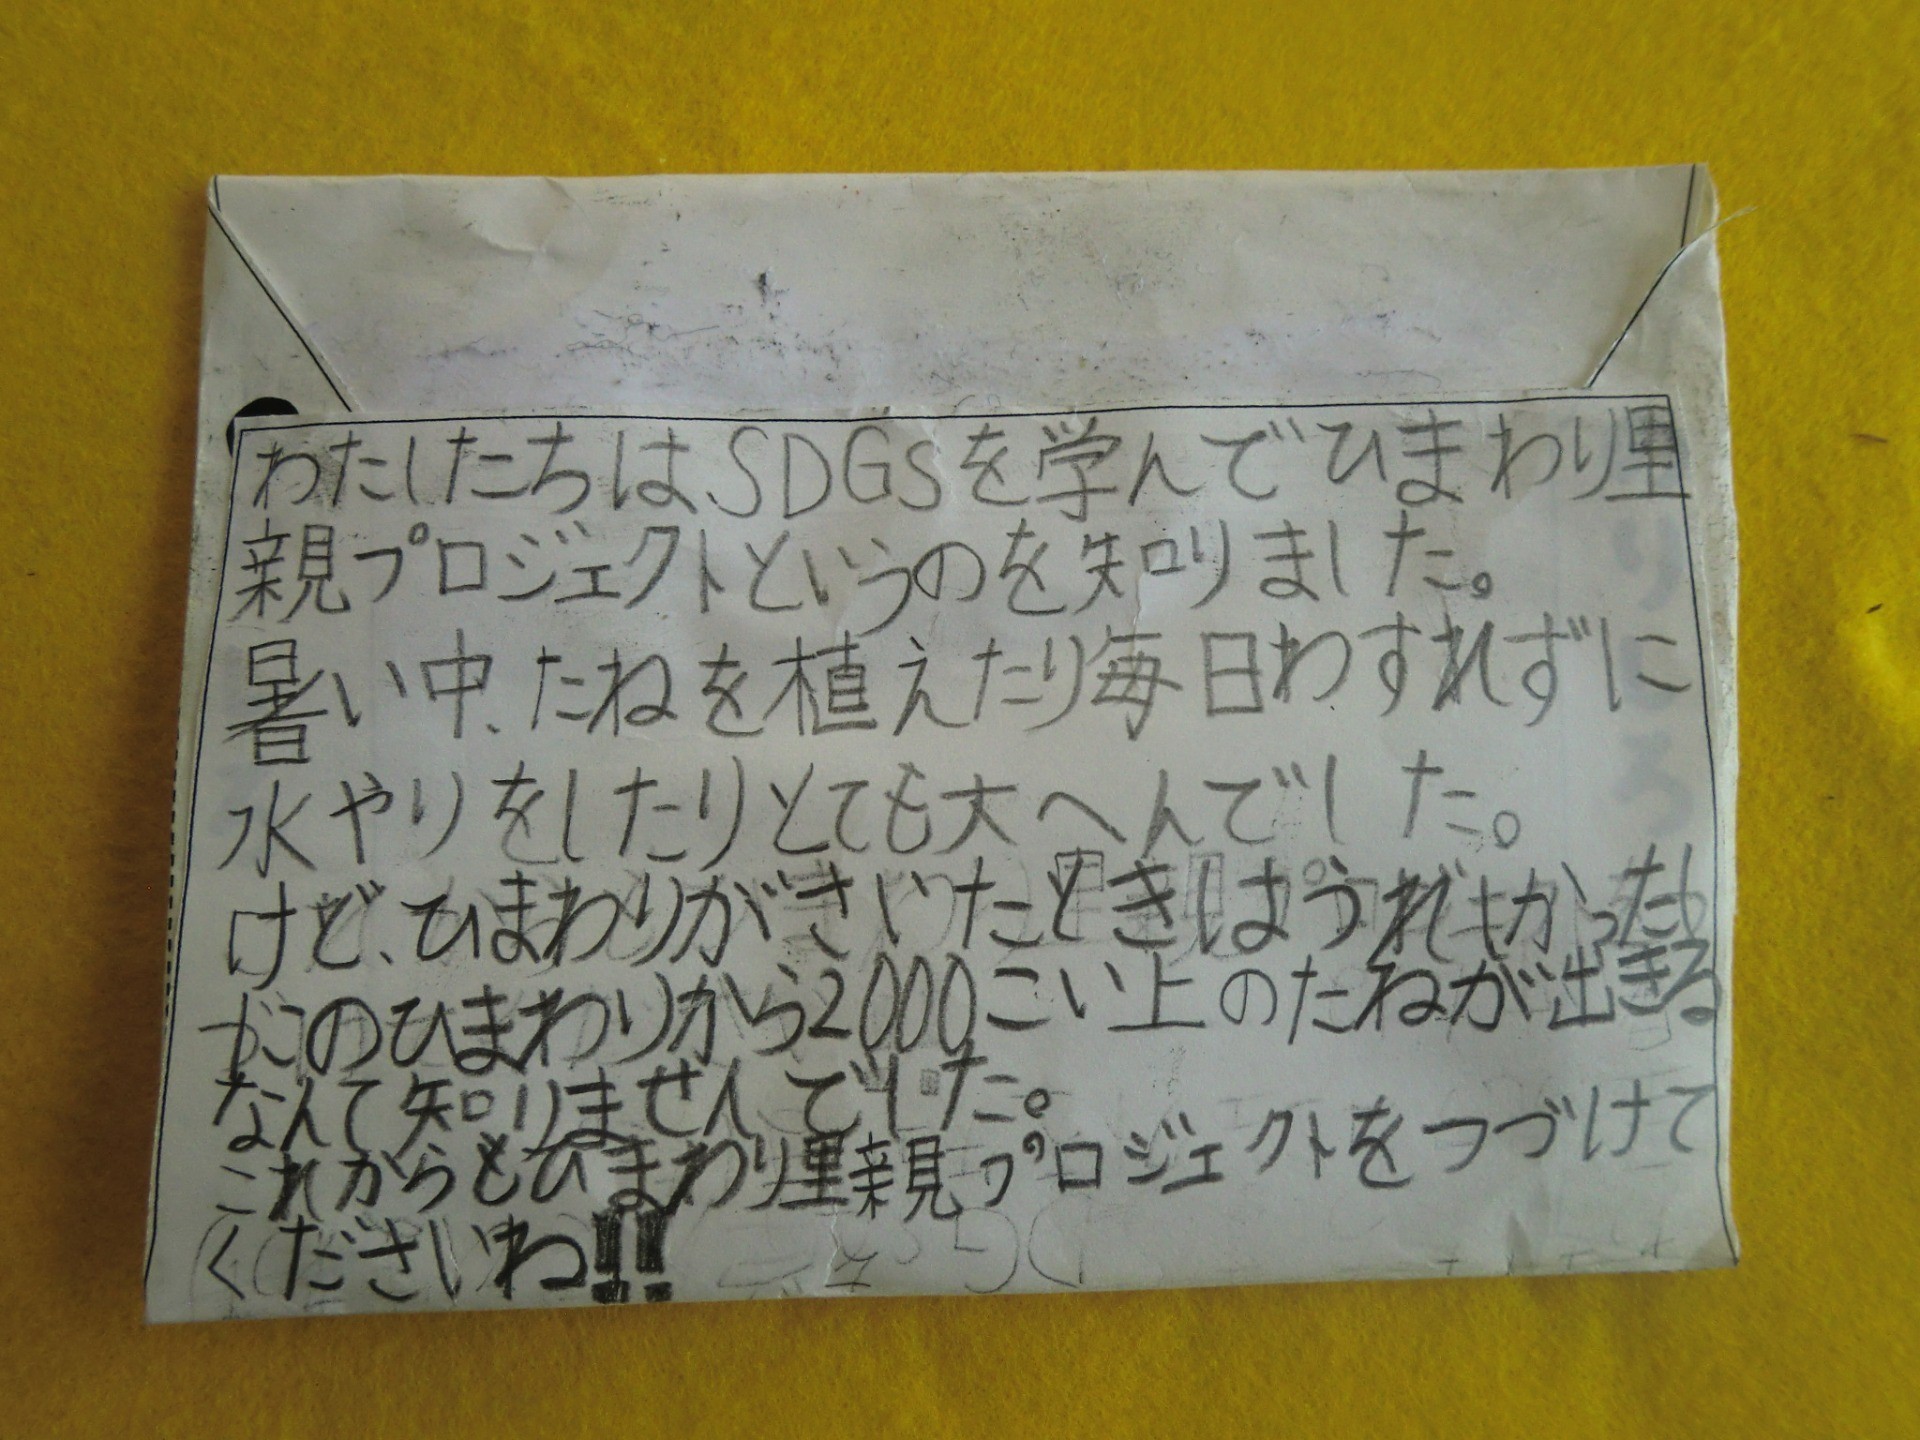 わたしたちは、SDGsを学んでひまわり里
親プロジェクトというのを知りました。
暑い中、たねを植えたり毎日わすれずに
水やりをしたりとても大へんでした。
けど、ひまわりがさいたときはうれしかったし
がこのひまわりから2000こい上のたねが出きる
なんて知りませんでした。
これからもひまわり里親プロジェクトをつづけて
くださいね!!